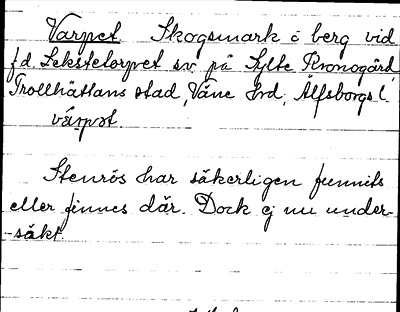 Varpet Skogsmark o berg vid
f.d. Lekstetorpet sv. på Sylte Kronogård,
Trollhättans stad, Väne Hrd, Älfsborgs l.
várpət
Stenrös har säkerligen funnits
eller finnes där. Dock ej nu under-
-sökt